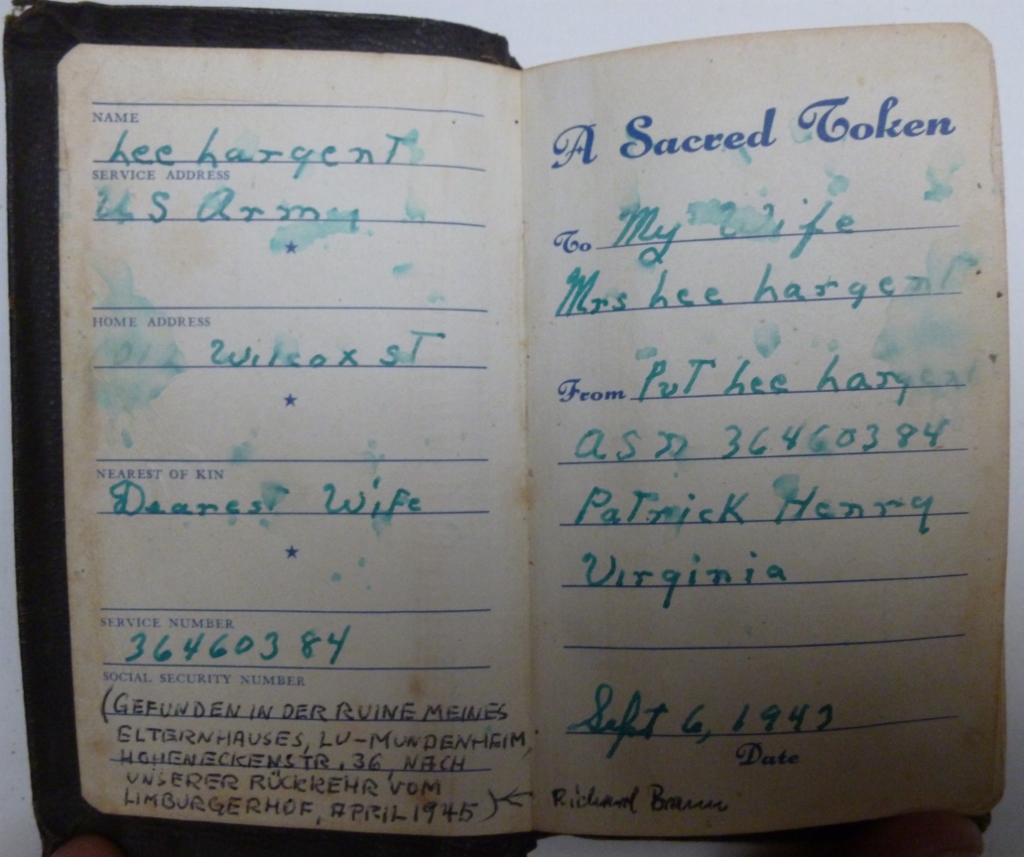 NAME
Lee Largent
SERVICE ADDRESS
US Army
HOME ADDRESS
Wilcox ST
NEAREST OF KIN
Dearest Wife
SERVICE NUMBER
36460384
SOCIAL SECURITY NUMBER
(GEFUNDEN IN DER RUINE MEINES
ELTERNHAUSES, LU-MUNDENHEIM,
HOHENECKENSTR. 36, NACH
UNSERER RÜCKKEHR VOM
LIMBURGERHOF, APRIL 1945)
A Sacred Token
To My Wife
Mrs Lee Largent
From PvT Lee Largent
ASN 36460384
PaTrick Henry
Virginia
Sept 6, 1943
Date
Richard Braun